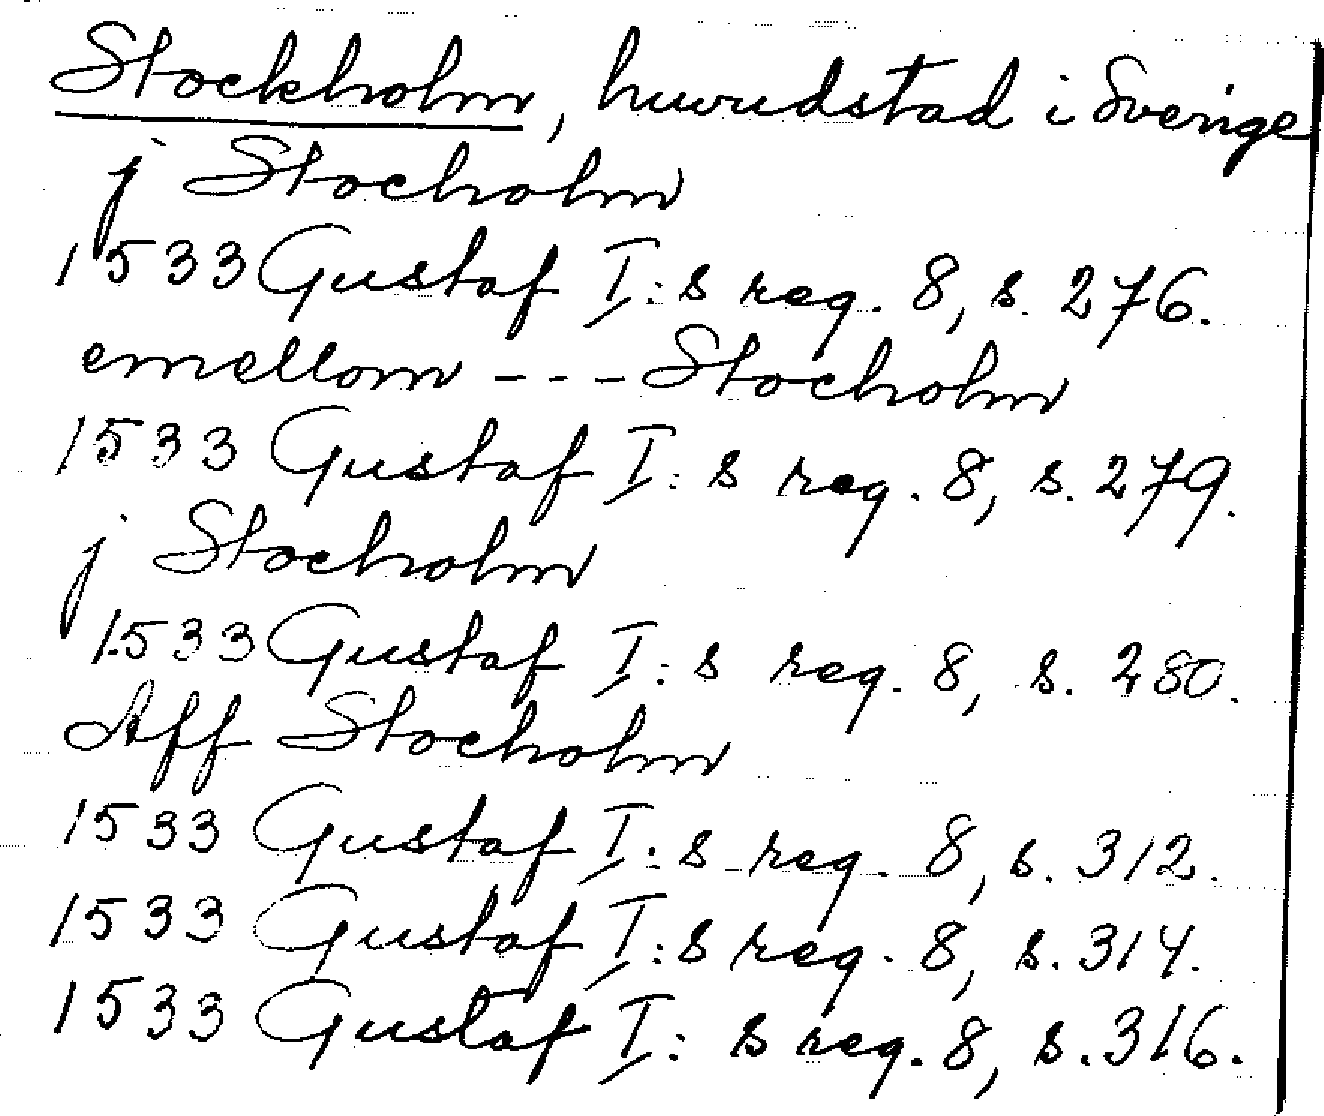 Stockholm, huvudstad i Sverige
j Stocholm
1533 Gustaf I:s reg. 8, s. 276.
emellom --- Stocholm
1533 Gustaf I:s reg. 8, s. 279.
j Stocholm
1533 Gustaf I:s reg. 8, s. 280.
Aff Stocholm
1533 Gustaf I:s reg. 8, s. 312.
1533 Gustaf I:s reg. 8, s. 314.
1533 Gustaf I:s reg. 8, s. 316.